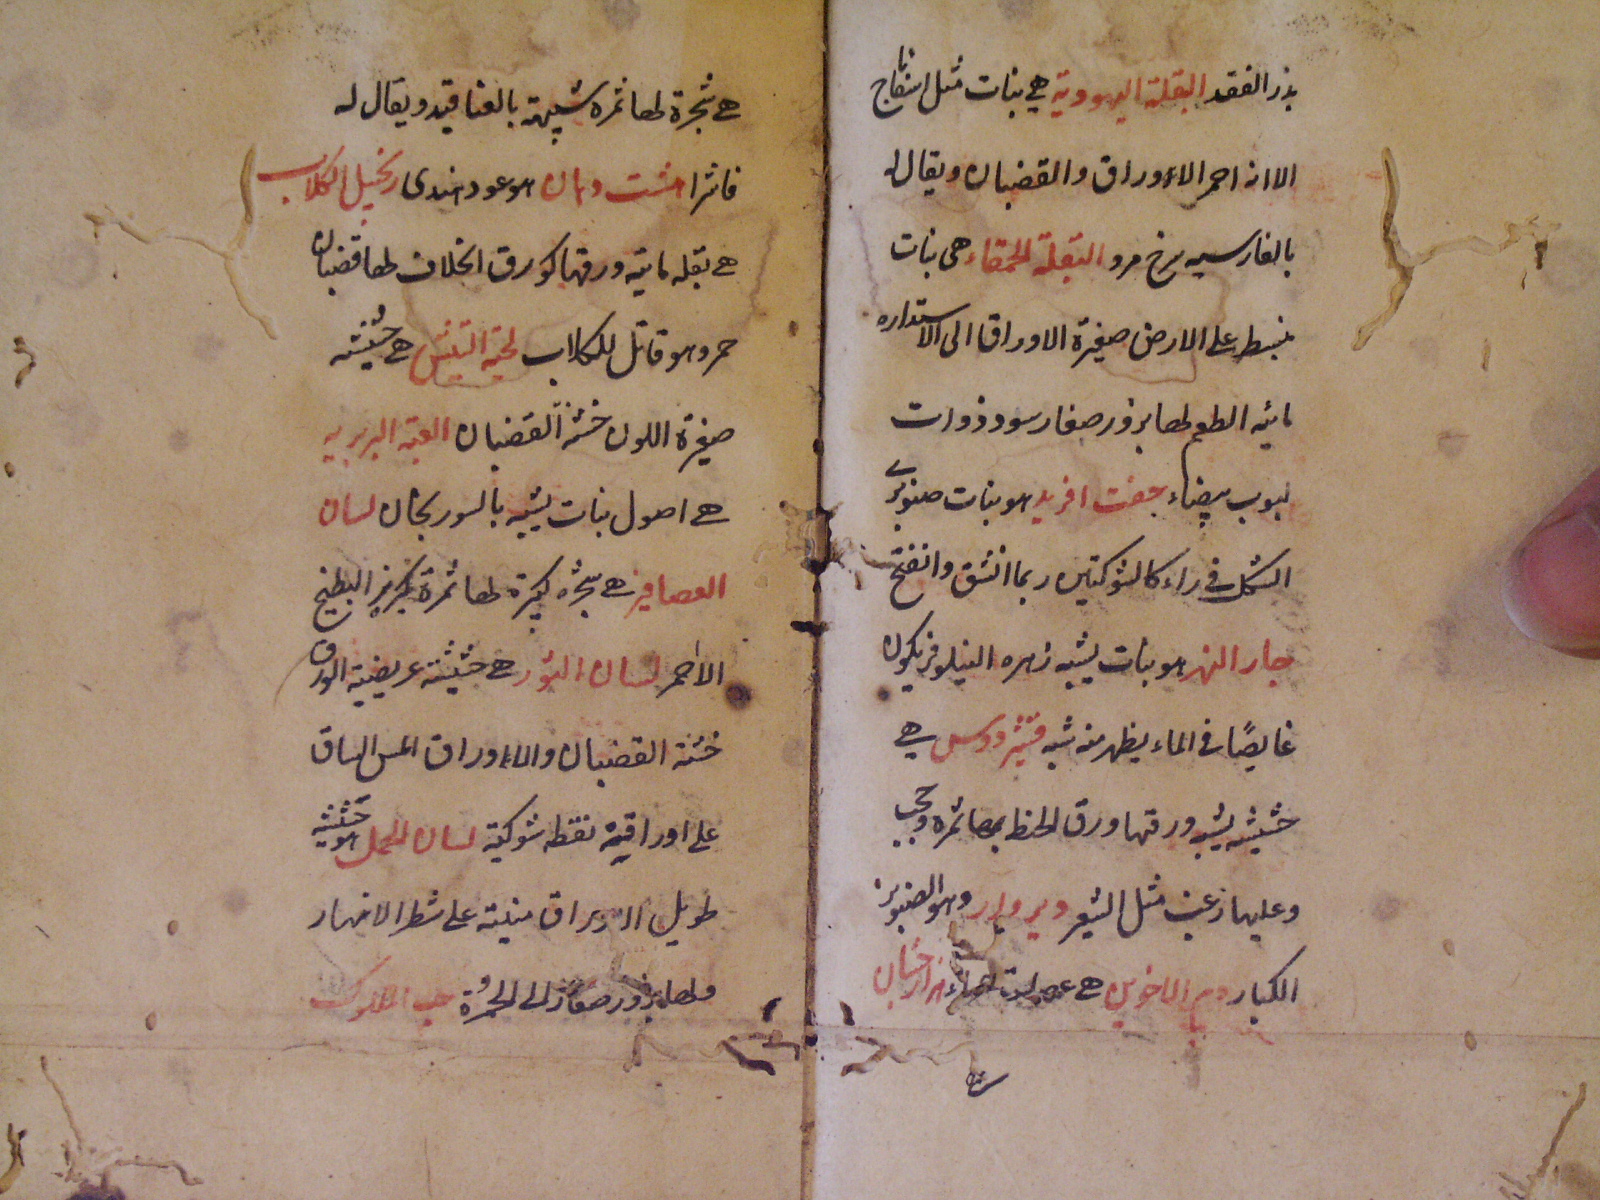 بذر الفقد البقلة اليهودية هي نبات مثل اسفاناج
الا انه احمر الاءوراق والقضبان ويقال له
بالفارسيه سرخ مرو البقلة الحمقاء هي نبات
منبسط على الارض صغيرة الاوراق الى الاستداره
مائيه الطعم لها بزور صغار سود ذوات
لبوب بيضاء جفت افريد هو نبات صنوبري
الشكل في راءسه كالشوكتين ربما انشق وانفتح
جار النهر هو نبات يشبه زهره النيلوفر يكون
غايصًا في الماء يظهر منه شبه هي
حشيشه يشبه ورقها ورق الحنظل بها ثمره
وعليها زغب مثل الشعر ديودار وهو الصنوبر
الكبار دم الاخوين هي عصارة حمراء هزارجشان
هي شجرة لها ثمره شبيهة بالعناقيد ويقال له
فاشرا هشت دهان هو عود هندى زنجبيل الكلاب
هي بقله مائيه ورقها كورق الخلاف لها قضبان
حمر وهو قاتل للكلاب لحية التيس هي حشيشه
صغيرة اللون خشنة القضبان اللعبة البربريه
هي اصول نبات يشبه بالسورنجان لسان
العصافير هي شجره كبيرة لها ثمرة كبزر البطيخ
الاحمر لسان الثور هي حشيشة عريضة الورق
خشنة القضبان والاءوراق املس الساق
على اوراقه نقط شوكية لسان الحمل هو حشيشه
طويل الاوراق منبته على شط الانهار
ولها بزور صغار الى الحمرة حب الملوك